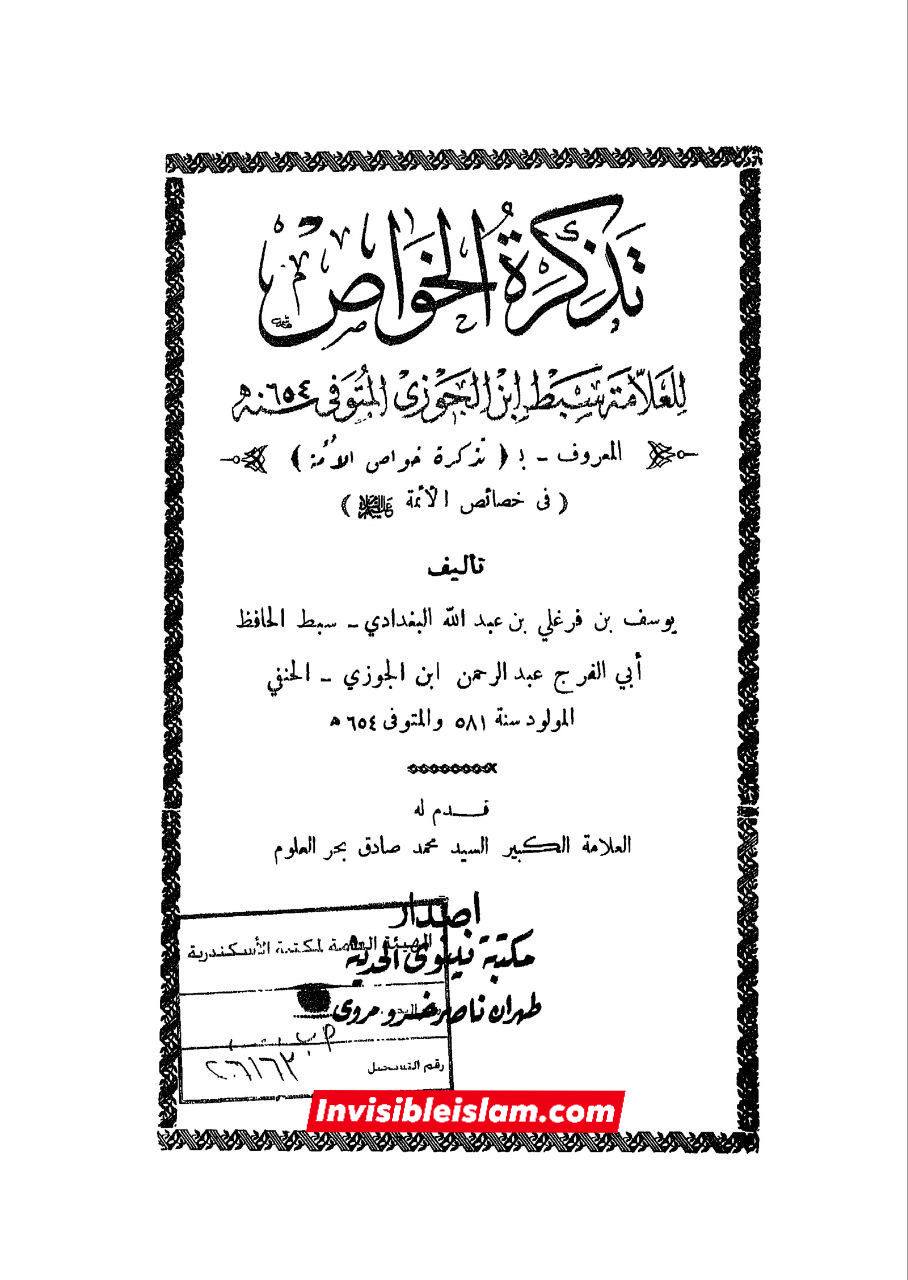 تَذكِرَةُ الخَوَاص
للعَلاّمَة سِبْط ابْن الجَوْزي المُتَوَفى سَنه ٦٥٤ ه
المعروف - ب ( تذكرة خواص الأُمة )
( في خصائص الأئمة عليهم السلام )
تأليف
يوسف بن فرغلي بن عبد الله البغدادي - سبط الحافظ
أبي الفرج عبد الرحمن ابن الجوزي - الحنفي
المولود سنة ٥٨١ والمتوفى ٦٥٤ ه
قدم له
العلامة الكبير السيد محمد صادق بحر العلوم
اصدار
مكتبة نينوى الحديثة
طهران ناصر خسرو مروى
الهيئة العامة لمكتبة الأسكندرية
رقم التسجيل ٢٠٦١٦٣
Invisibleislam.com